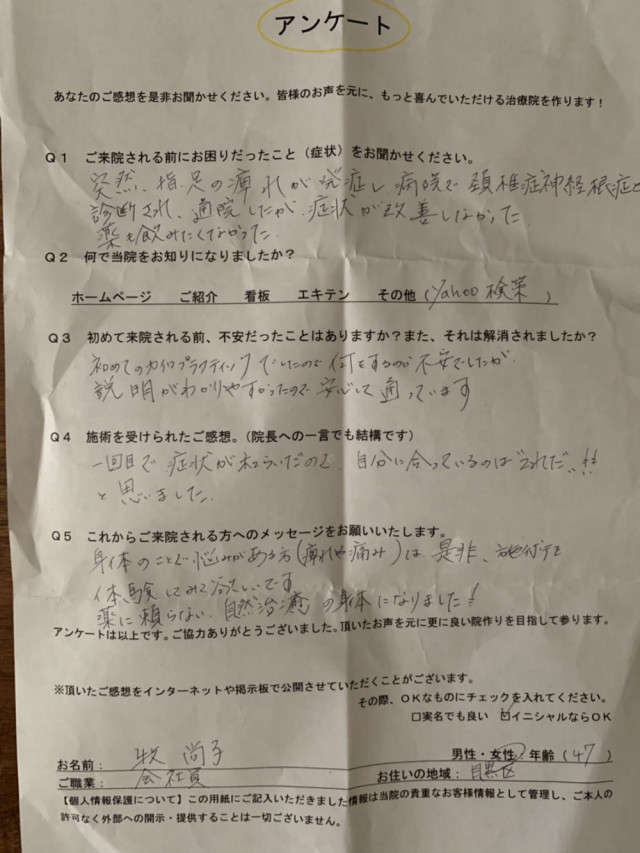 アンケート
あなたのご感想を是非お聞かせください。皆様のお声を元に、もっと喜んでいただける治療院を作ります！
Ｑ１　ご来院される前にお困りだったこと（症状）をお聞かせください。
突然、指足の痺れが発症し病院で頚椎症神経根症と
診断され、通院したが、症状が改善しなかった。
薬も飲みたくなかった。
Ｑ２　何で当院をお知りになりましたか？
ホームページ　ご紹介　看板　エキテン　その他（Yahoo検索）
Ｑ３　初めて来院される前、不安だったことはありますか？また、それは解消されましたか？
初めてのカイロプラクティックでしたので何をするのか不安でしたが
説明がわかりやすかったので安心して通っています
Ｑ４　施術を受けられたご感想。（院長への一言でも結構です）
一回目で症状が和らいだので、自分に合っているのは"これだ"!!
と思いました。
Ｑ５　これからご来院される方へのメッセージをお願いいたします。
身体のことで悩みがある方（痺れや痛み）は是非、施術を
体験してみて欲しいです
薬に頼らない自然治癒の身体になりました！
アンケートは以上です。ご協力ありがとうございました。頂いたお声を元に更に良い院作りを目指して参ります。
※頂いたご感想をインターネットや掲示板で公開させていただくことがございます。
その際、ＯＫなものにチェックを入れてください。
□実名でも良い　☑イニシャルならＯＫ
お名前：牧 尚子　男性・女性　年齢（47）
ご職業：会社員　お住いの地域：目黒区
【個人情報保護について】この用紙にご記入いただきました情報は当院の貴重なお客様情報として管理し、ご本人の
許可なく外部への開示・提供することは一切ございません。